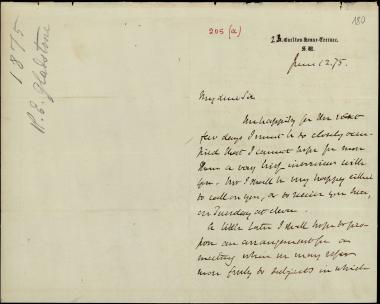 1875
W. E. Gladstone
205 (a)
180
Carlton House Terrace.
S. W.
June 12. 75.
My dear Sir
Unhappily for the next
few days I must be so closely occu-
pied that I cannot hope for more
than a very brief interview with
you. But I shall be very happy either
to call on you, or to receive you here,
on Tuesday at eleven.
A little later I shall hope to pro-
pose an arrangement for a
meeting when we may refer
more freely to subjects in which